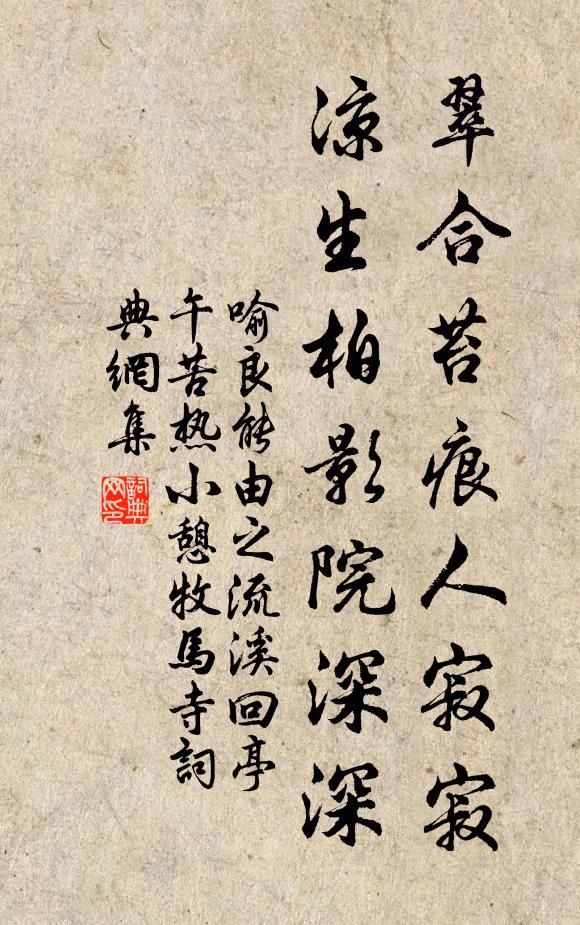 翠合苔痕人寂寂
涼生柏影院深深
喻良能由之流溪回亭
午苦热小憩牧馬寺詞
典網集
詞典網印